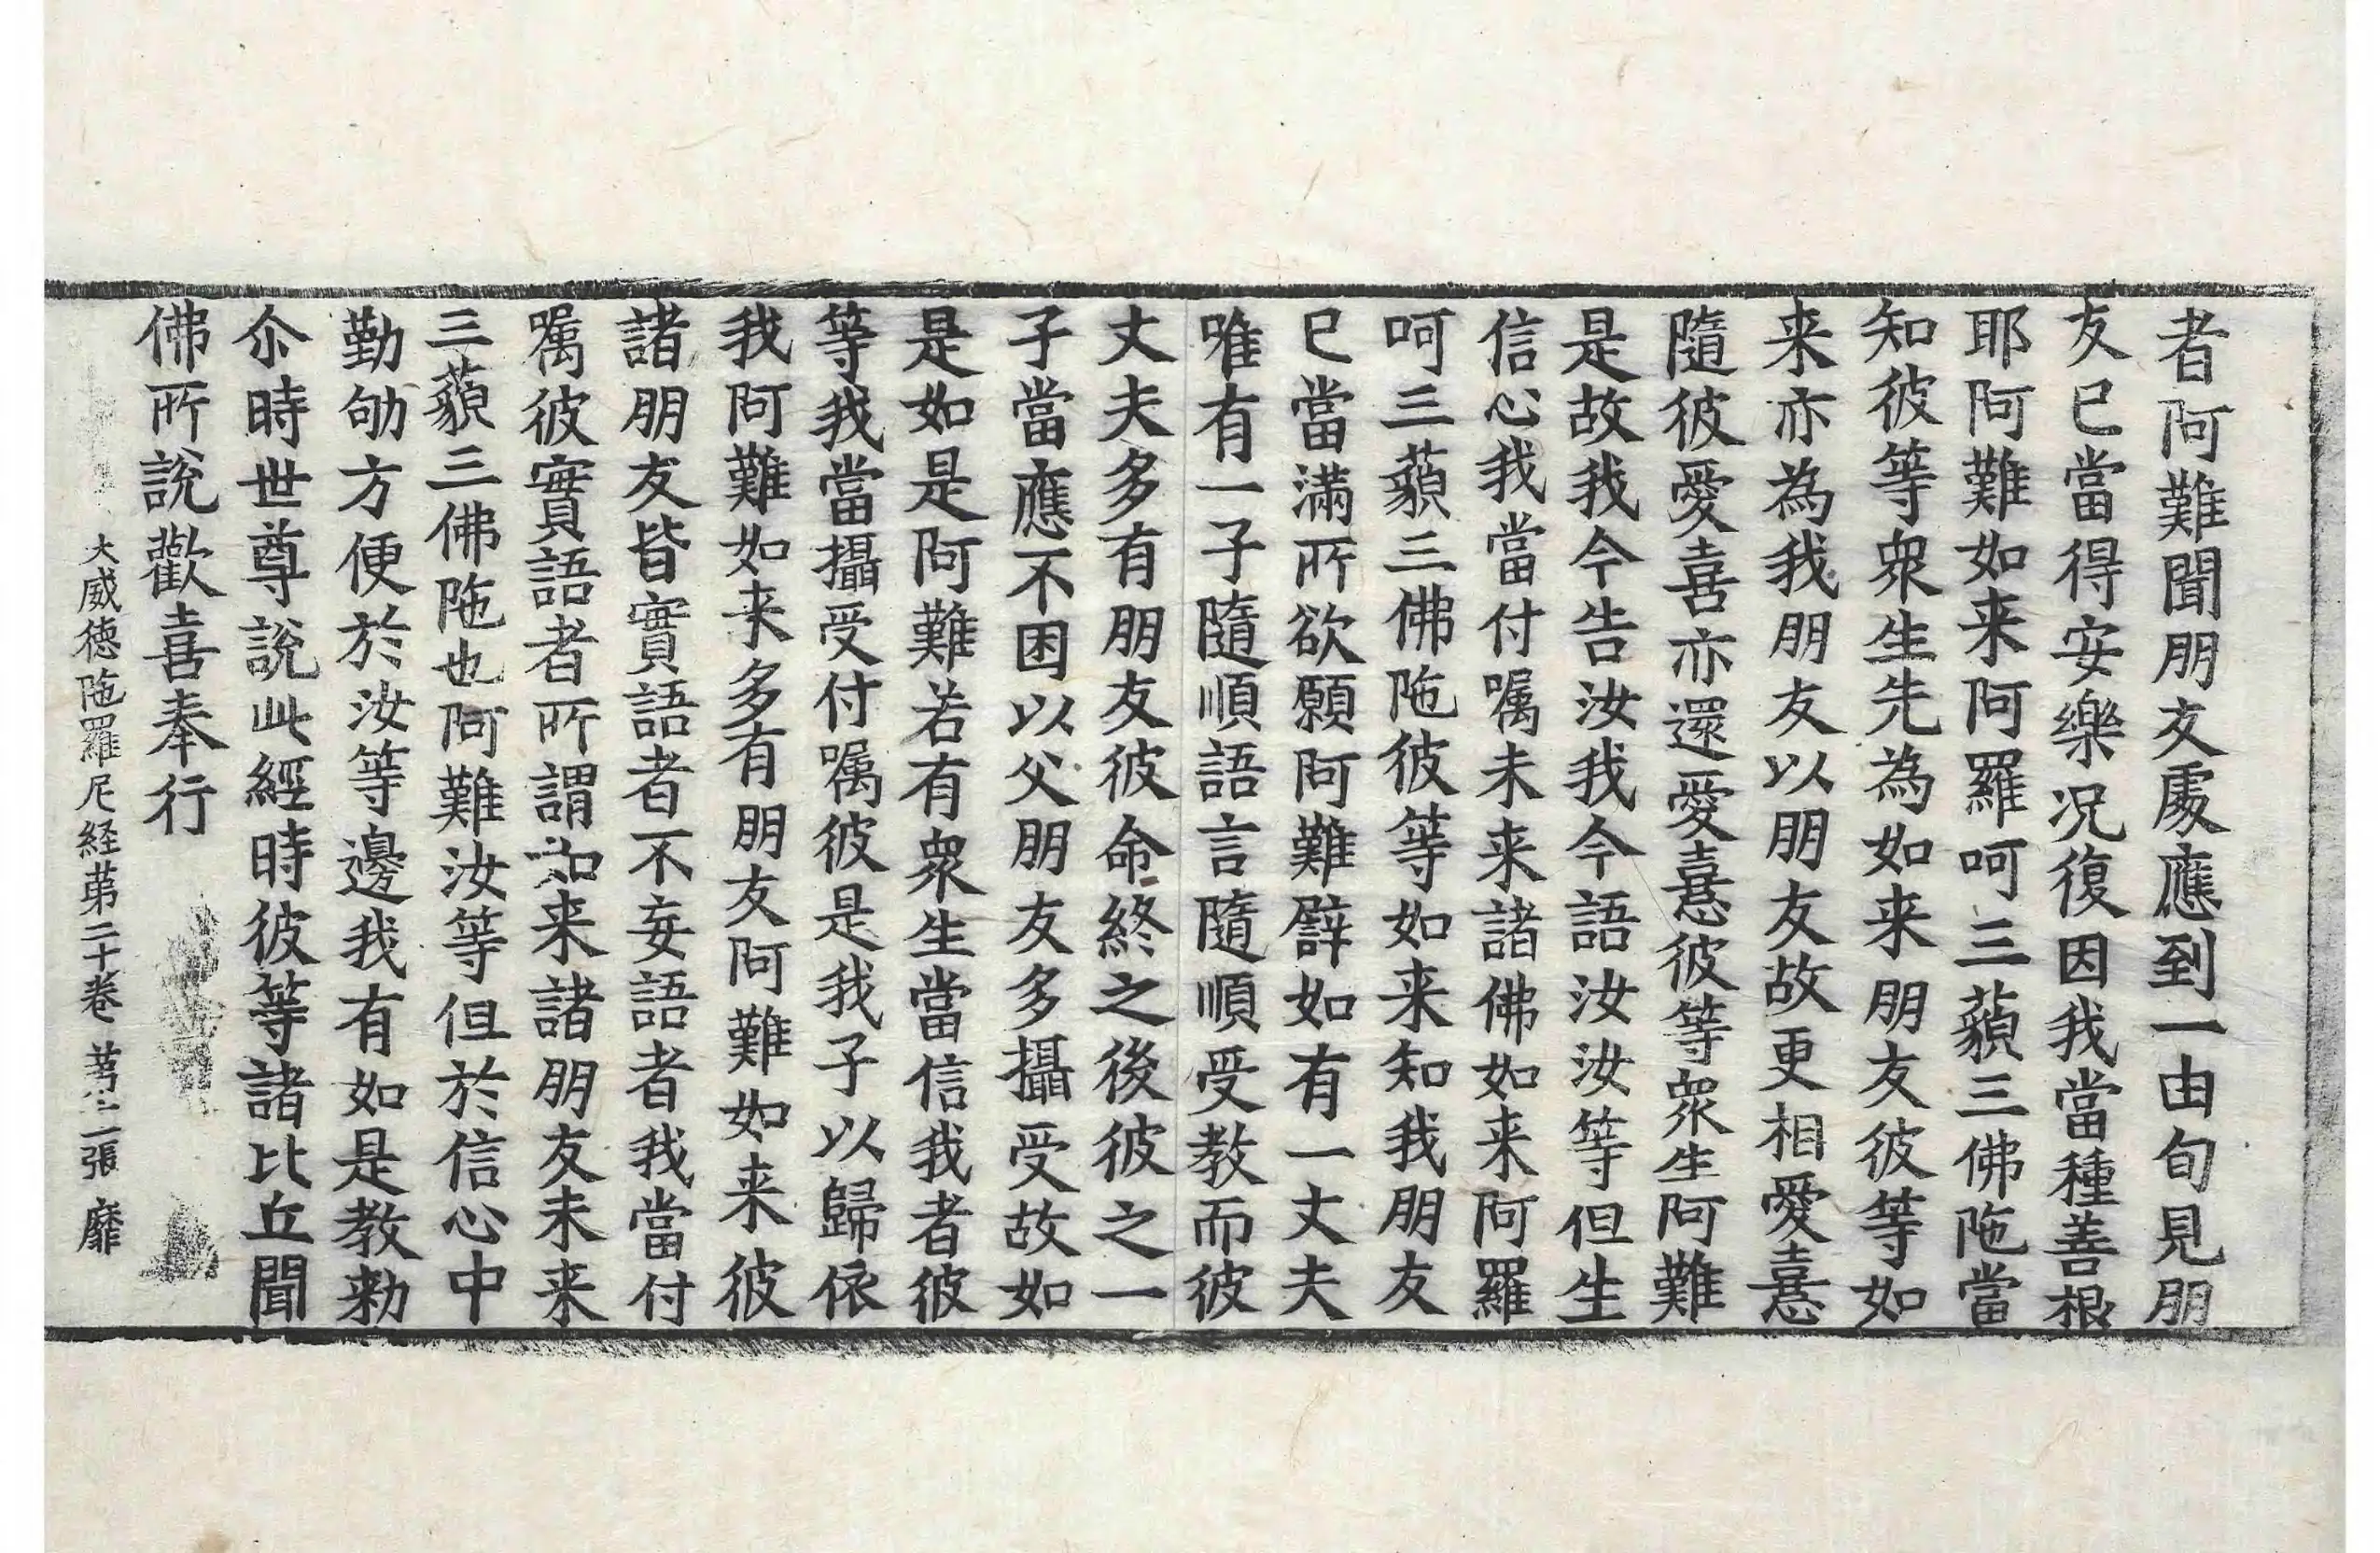 者阿難聞朋友處應到一由旬見朋
友已當得安樂况復因我當種善根
耶阿難如来阿羅呵三藐三佛陁當
知彼等衆生先為如来朋友彼等如
来亦為我朋友以朋友故更相愛憙
隨彼愛喜亦還愛憙彼等衆生阿難
是故我今告汝我今語汝汝等但生
信心我當付嘱未来諸佛如来阿羅
呵三藐三佛陁彼等如来知我朋友
已當滿所欲願阿難譬如有一丈夫
唯有一子隨順語言隨順受教而彼
丈夫多有朋友彼命終之後彼之一
子當應不困以父朋友多攝受故如
是如是阿難若有衆生當信我者彼
等我當攝受付嘱彼是我子以歸依
我阿難如来多有朋友阿難如来彼
諸朋友皆實語者不妄語者我當付
嘱彼實語者所謂如来諸朋友未来
三藐三佛陁也阿難汝等但於信心中
勤劬方便於汝等邊我有如是教勑
尒時世尊說此經時彼等諸比丘聞
佛所說歡喜奉行
大威德陁羅尼経苐二十卷 苐二張 靡